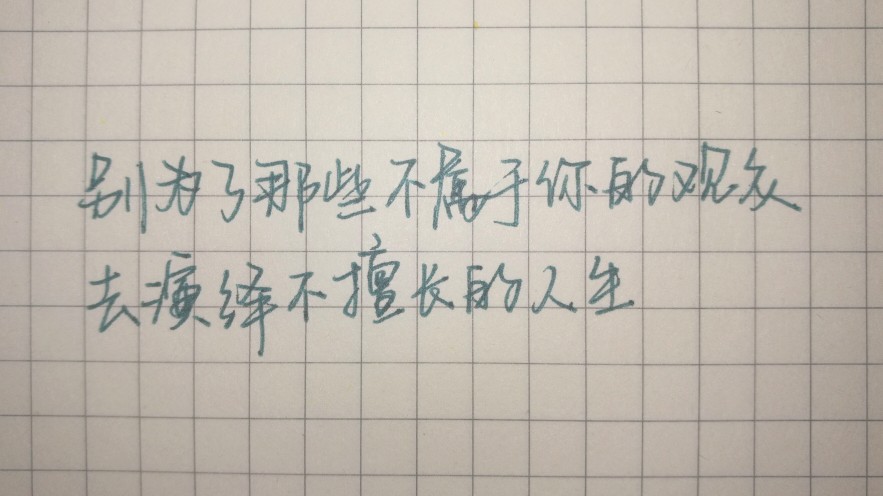 别为了那些不属于你的观众
去演绎不擅长的人生